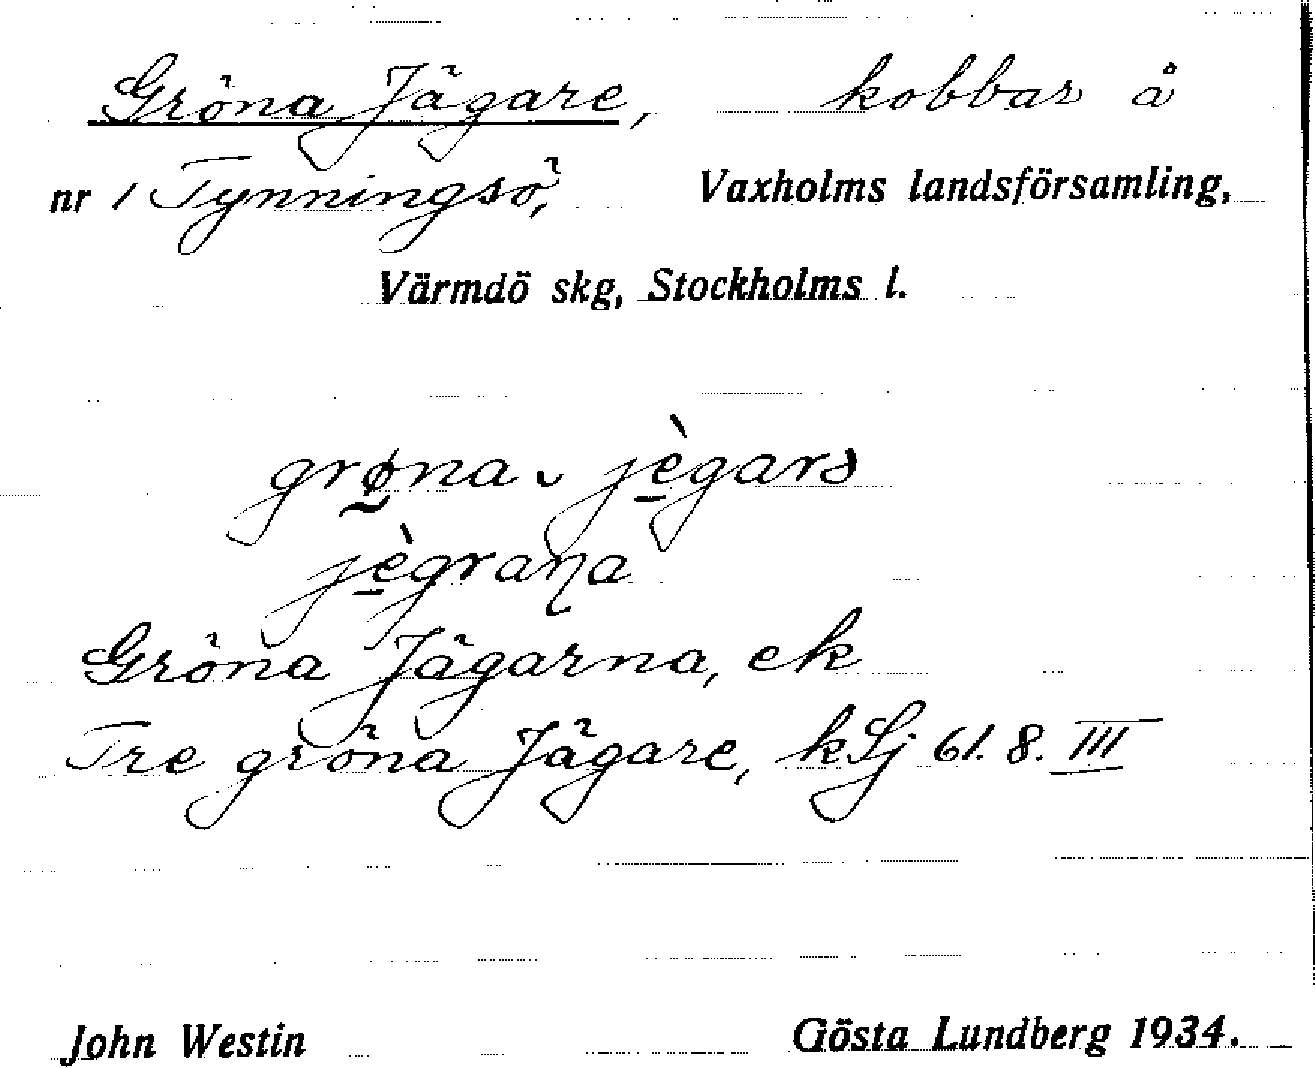 Gröna Jägare, kobbar å
nr 1 Tynningsö, Vaxholms landsförsamling,
Värmdö skg, Stockholms l.
grø̰na ᴗ jè̱garə
jè̱graɳa
Gröna Jägarna, ek
Tre gröna Jägare, kSj 61. 8. III
John Westin Gösta Lundberg 1934.